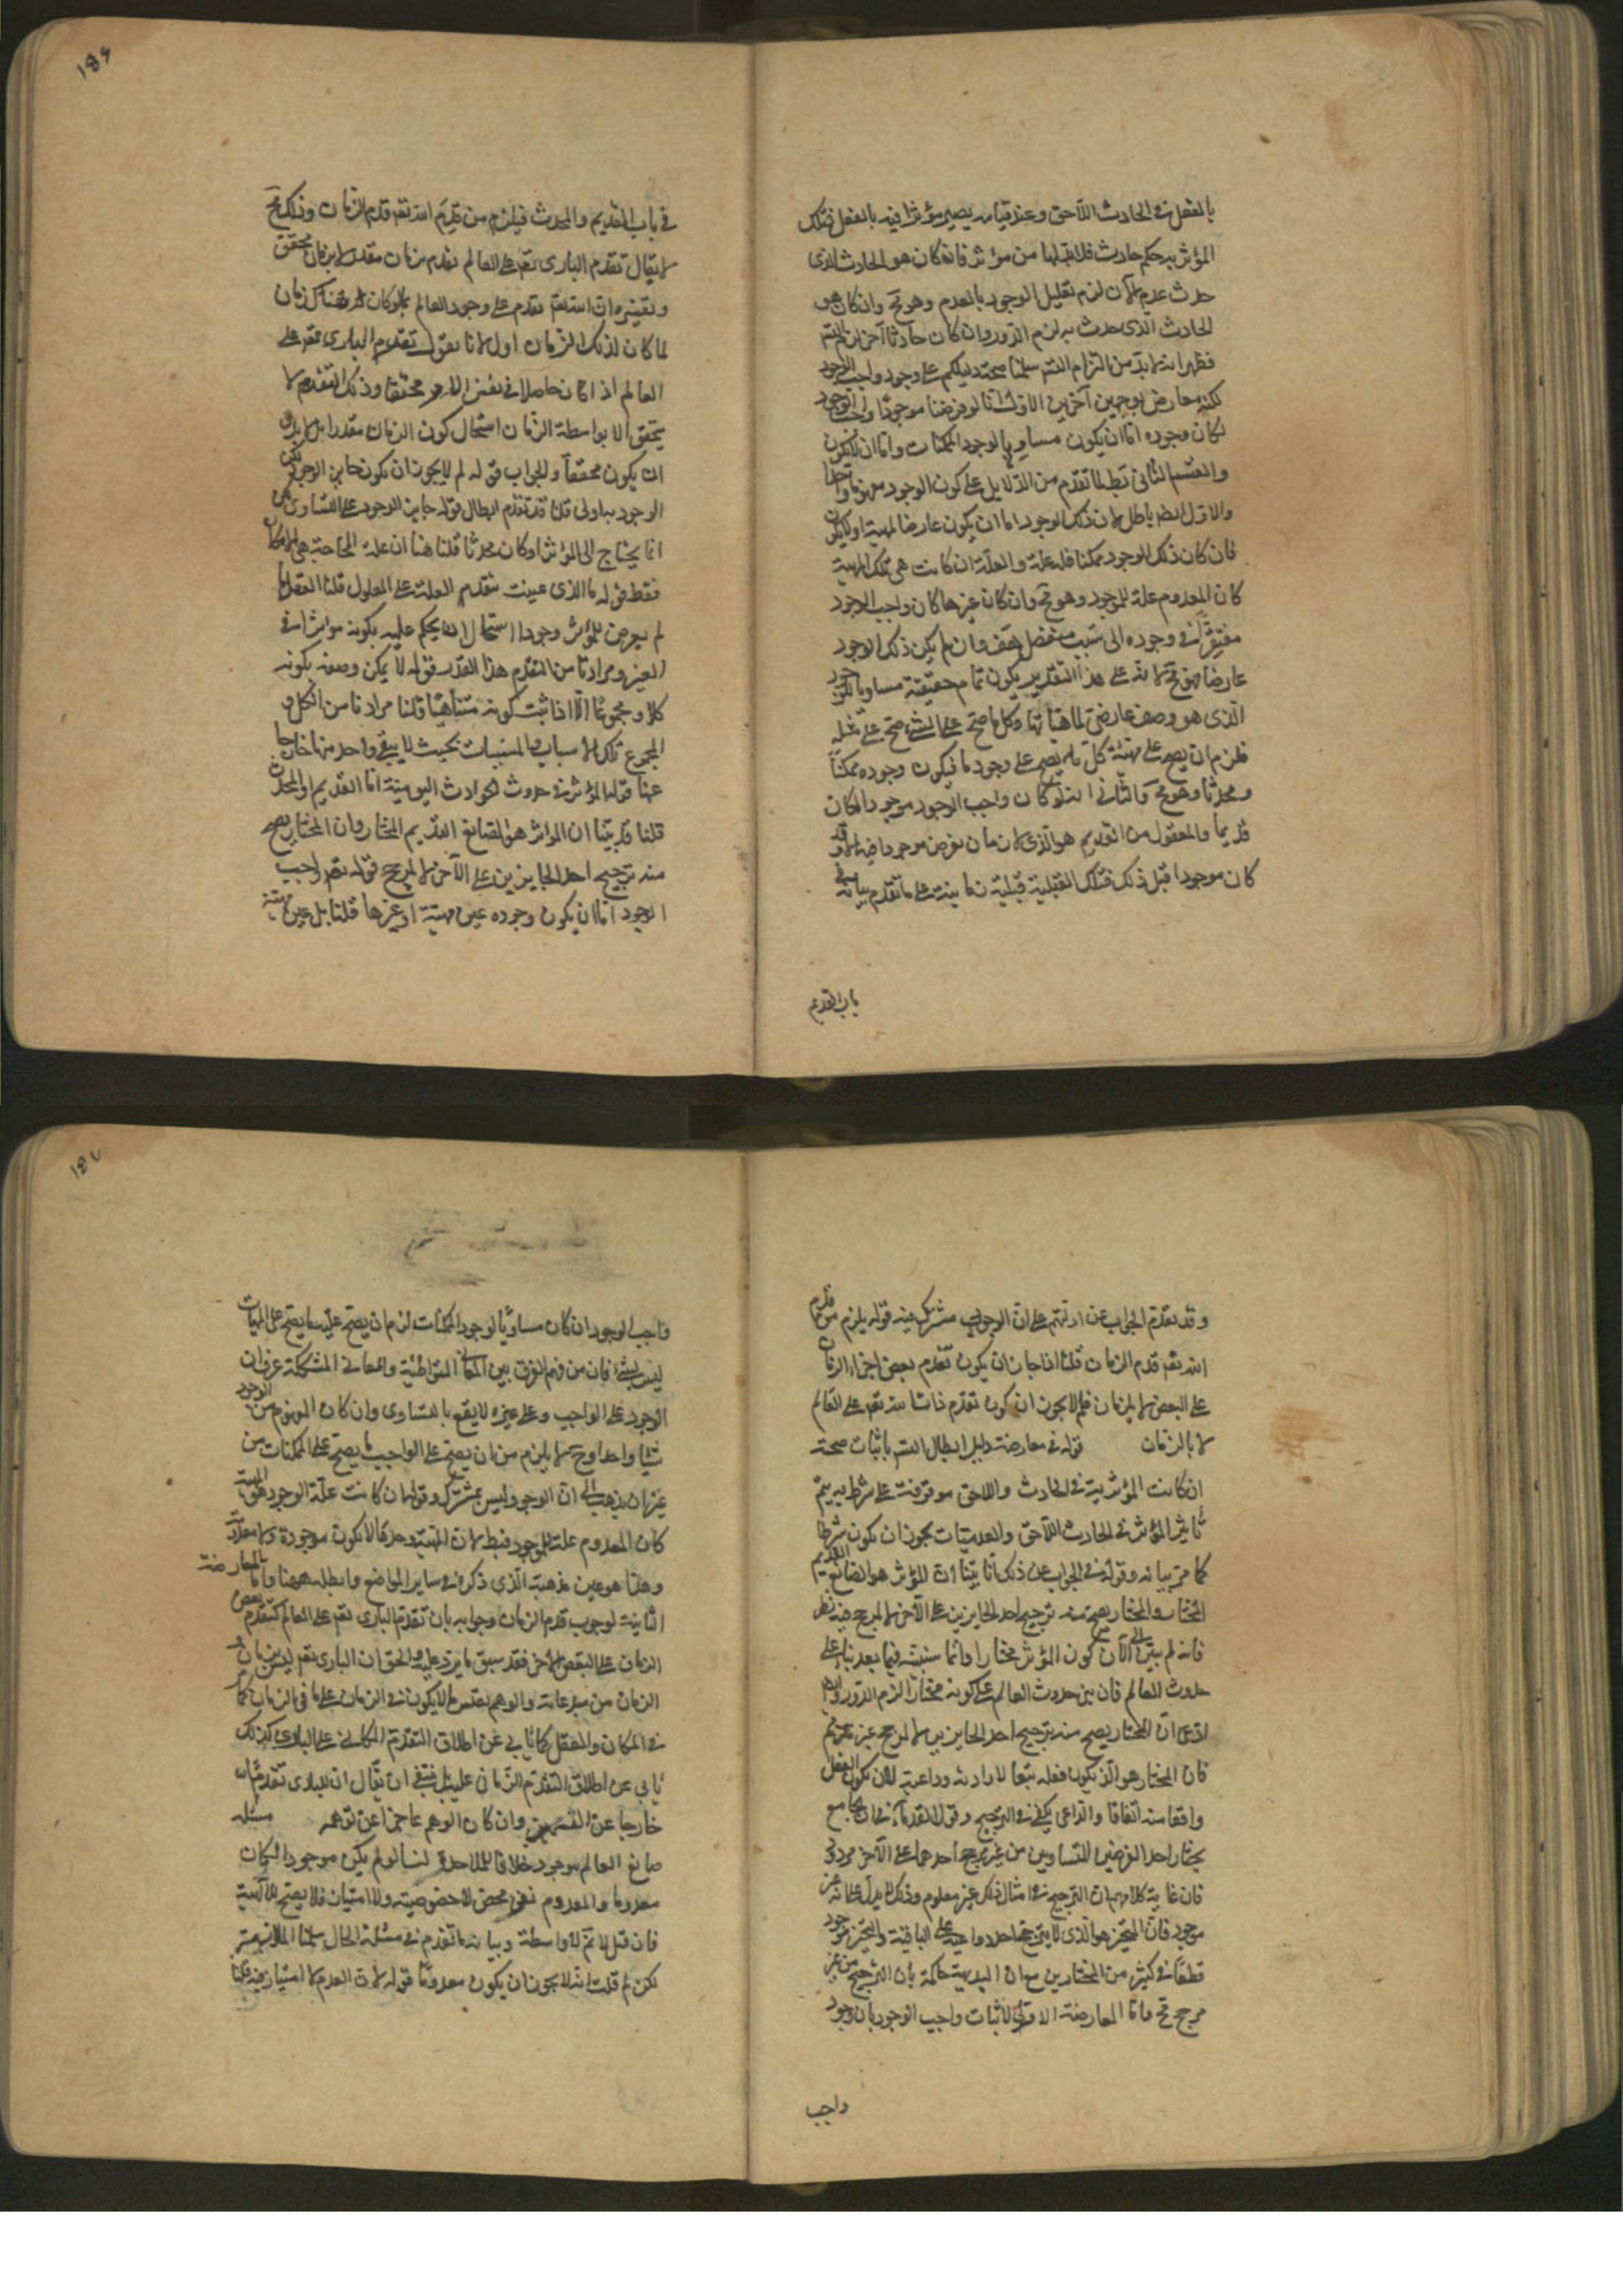 بالفعل فى الحادث اللاحق وعند قيامه يصير مؤثرا فيه بالفعل فتلك
المؤثرية حكم حادث فلا بد لها من مؤثر فانه كان هو الحادث الذى
حدث عدم الآن لزم تعليل الوجود بالعدم وهو مح وان كان هو
الحادث الذى حدث به لزم الدور وان كان حادثا آخر لزم التسلسل
فظهر انه لا بد من التزام التس سلمنا صحة دليلكم على وجود واجب الوجود
لكنه معارض بوجهين آخرين الاول انا لو فرضنا موجودا واجب الوجود
لكان وجوده اما ان يكون مساويا لوجود الممكنات واما ان لا يكون
والقسم الثانى بط لما تقدم من الدلايل على كون الوجود مفهوما واحدا
والاول ايضا باطل لان ذلك الوجود اما ان يكون عارضا لمهية او لا يكون
فان كان ذلك الوجود ممكنا فله علة والعلة ان كانت هى تلك المهية
كان المعدوم علة للموجود وهو مح وان كان غيرها كان واجب الوجود
مفتقرا فى وجوده الى سبب منفصل هف وان لم يكن ذلك الوجود
عارضا فهو مح لانه على هذا التقدير يكون تمام حقيقته مساويا للوجود
الذى هو وصف عارض لماهياتنا وكل ما صح على الشئ صح على مثله
فلزم ان يصح على مهيته كل ما يصح على وجودنا فيكون وجوده ممكنا
ومحدثا وهو مح والثانى انه لو كان واجب الوجود موجودا لكان
قديما والمعقول من القديم هو الذى لا زمان نفرض موجودا فيه الا وقد
كان موجودا قبل ذلك فتلك القبلية قبلية زمانية على ما تقدم بيانه فى
باب القديم
١٥٦
فى باب القديم والمحدث فيلزم من قدم الله تعه قدم الزمان وذلك مح
لا يقال تقدم البارى تعه على العالم تقدم بزمان مقدر لا بزمان محقق
وتفسيره ان الله تعه تقدم على وجود العالم بما لو كان هناك زمان
لما كان لذلك الزمان اول لانا نقول تقدم البارى تعه على
العالم اذا كان حاصلا فى نفس الامر محققا وذلك التقدم لا
يتحقق الا بواسطة الزمان استحال كون الزمان مقدرا بل لا بد
ان يكون محققا والجواب قوله لم لا يجوز ان يكون جايز الوجود لكن
الوجود به اولى قلنا قد تقدم ابطال قوله جايز الوجود على التساوى
انما يحتاج الى المؤثر لو كان محدثا قلنا هنا ان علة الحاجة هى الامكان
فقط قوله ما الذى عنيت بتقدم العلة على المعلول قلنا العقل ما
لم يعرض للمؤثر وجودا استحال ان يحكم عليه بكونه مؤثرا فى
الغير ومرادنا من التقدم هذا القدر قوله لا يمكن وصفه بكونه
كلا ومجموعا الا اذا ثبت كونه متناهيا قلنا مرادنا من الكل و
المجموع تلك الاسباب والمسببات بحيث لا يبقى واحد منها خارجا
عنها قوله المؤثر فى حدوث الحوادث اليومية اما القديم او المحدث
قلنا قد بينا ان المؤثر هو الصانع القديم المختار وان المختار يصح
منه ترجيح احد الجايزين على الآخر لا لمرجح قوله تعه واجب
الوجود اما ان يكون وجوده عين مهيته او غيرها قلنا بل عين مهيته
وقد تقدم الجواب عن ادلتهم على ان الوجود مشترك فيه قوله يلزم من قدم
الله تعه قدم الزمان قلنا اذا جاز ان يكون تقدم بعض اجزاء الزمان
على البعض لا بالزمان فلم لا يجوز ان يكون تقدم ذات الله تعه على العالم
لا بالزمان قوله فى معارضة دليل ابطال التس باثبات صحة
ان كانت المؤثرية فى الحادث واللاحق موقوفة على شرط به يتم
تأثير المؤثر فى الحادث اللاحق والعدميات يجوز ان يكون شرطا
كما مر بيانه وقوله فى الجواب عن ذلك انا بينا ان المؤثر هو الصانع القديم
المختار والمختار يصح منه ترجيح احد الجايزين على الآخر لا لمرجح فيه نظر
فانه لم يبين الى الآن كون المؤثر مختارا وانما سنبينه فيما بعد بناء على
حدوث العالم فان بين حدوث العالم على كونه مختارا لزم الدور وايضا
ادعى ان المختار يصح منه ترجيح احد الجايزين لا لمرجح غير مسلم
فان المختار هو الذى يكون فعله تبعا لارادته وداعيه لا ان يكون الفعل
واقعا منه اتفاقا والداعى يكفى فى الترجيح وقول القدماء فى ان الجايع
يختار احد القرصين المتساويين من غير ترجح احدهما على الآخر مردود
فان غاية كلامهم ان الترجيح فى امثال ذلك غير معلوم وذلك لا يدل على انه غير
موجود فان المتحير هو الذى لا يترجح احد دواعيه على الباقية والتحير موجود
قطعا فى كثير من المختارين مع ان البديهة حاكمة بان الترجيح من غير
مرجح مح واما المعارضة الاولى لاثبات واجب الوجود بان وجود
واجب
١٥٧
واجب الوجود ان كان مساويا لوجود الممكنات لزم ان يصح عليه ما يصح على الممكنات
ليس بشئ فان من فهم الفرق بين المعانى المتواطئية والمعانى المشككة عرف ان
الوجود على الواجب وعلى غيره لا يقع بالتساوى وان كان المفهوم من الوجود
شيئا واحدا وح لا يلزم من ان يصح على الواجب ما يصح على الممكنات من
غير ان يذهب الى ان الوجود ليس بمشترك وقوله ان كانت علة الوجود هى المهية
كان المعدوم علة للموجود فبط لان المهية وحدها لا تكون موجودة ولا معدومة
وهذا هو عين مذهبه الذى ذكره فى ساير المواضع وابطله ههنا واما المعارضة
الثانية لوجوب قدم الزمان وجوابه بان تقدم البارى تعه على العالم كتقدم بعض
الزمان على البعض الآخر فقد سبق ما يرد عليه والحق ان البارى تعه ليس بزمانى و
الزمان من مبدعاته والوهم يقيس ما لا يكون فى الزمان على ما فى الزمان كما
فى المكان والعقل كما يابى عن اطلاق التقدم المكانى على البارى كذلك
يابى عن اطلاق التقدم الزمانى عليه بل ينبغى ان يقال ان للبارى تقدما
خارجا عن القسمين وان كان الوهم عاجزا عن توهمه مسئلة
صانع العالم موجود خلافا للملاحدة لنا لو لم يكن موجودا لكان
معدوما والمعدوم نفى محض لا خصوصية ولا امتياز فلا يصح للالهية
فان قيل لا نم لا واسطة وبيانه ما تقدم فى مسئلة الحال سلمنا
لكن لم قلت انه لا يجوز ان يكون معدوما قوله لان العدم لا امتياز فيه قلنا